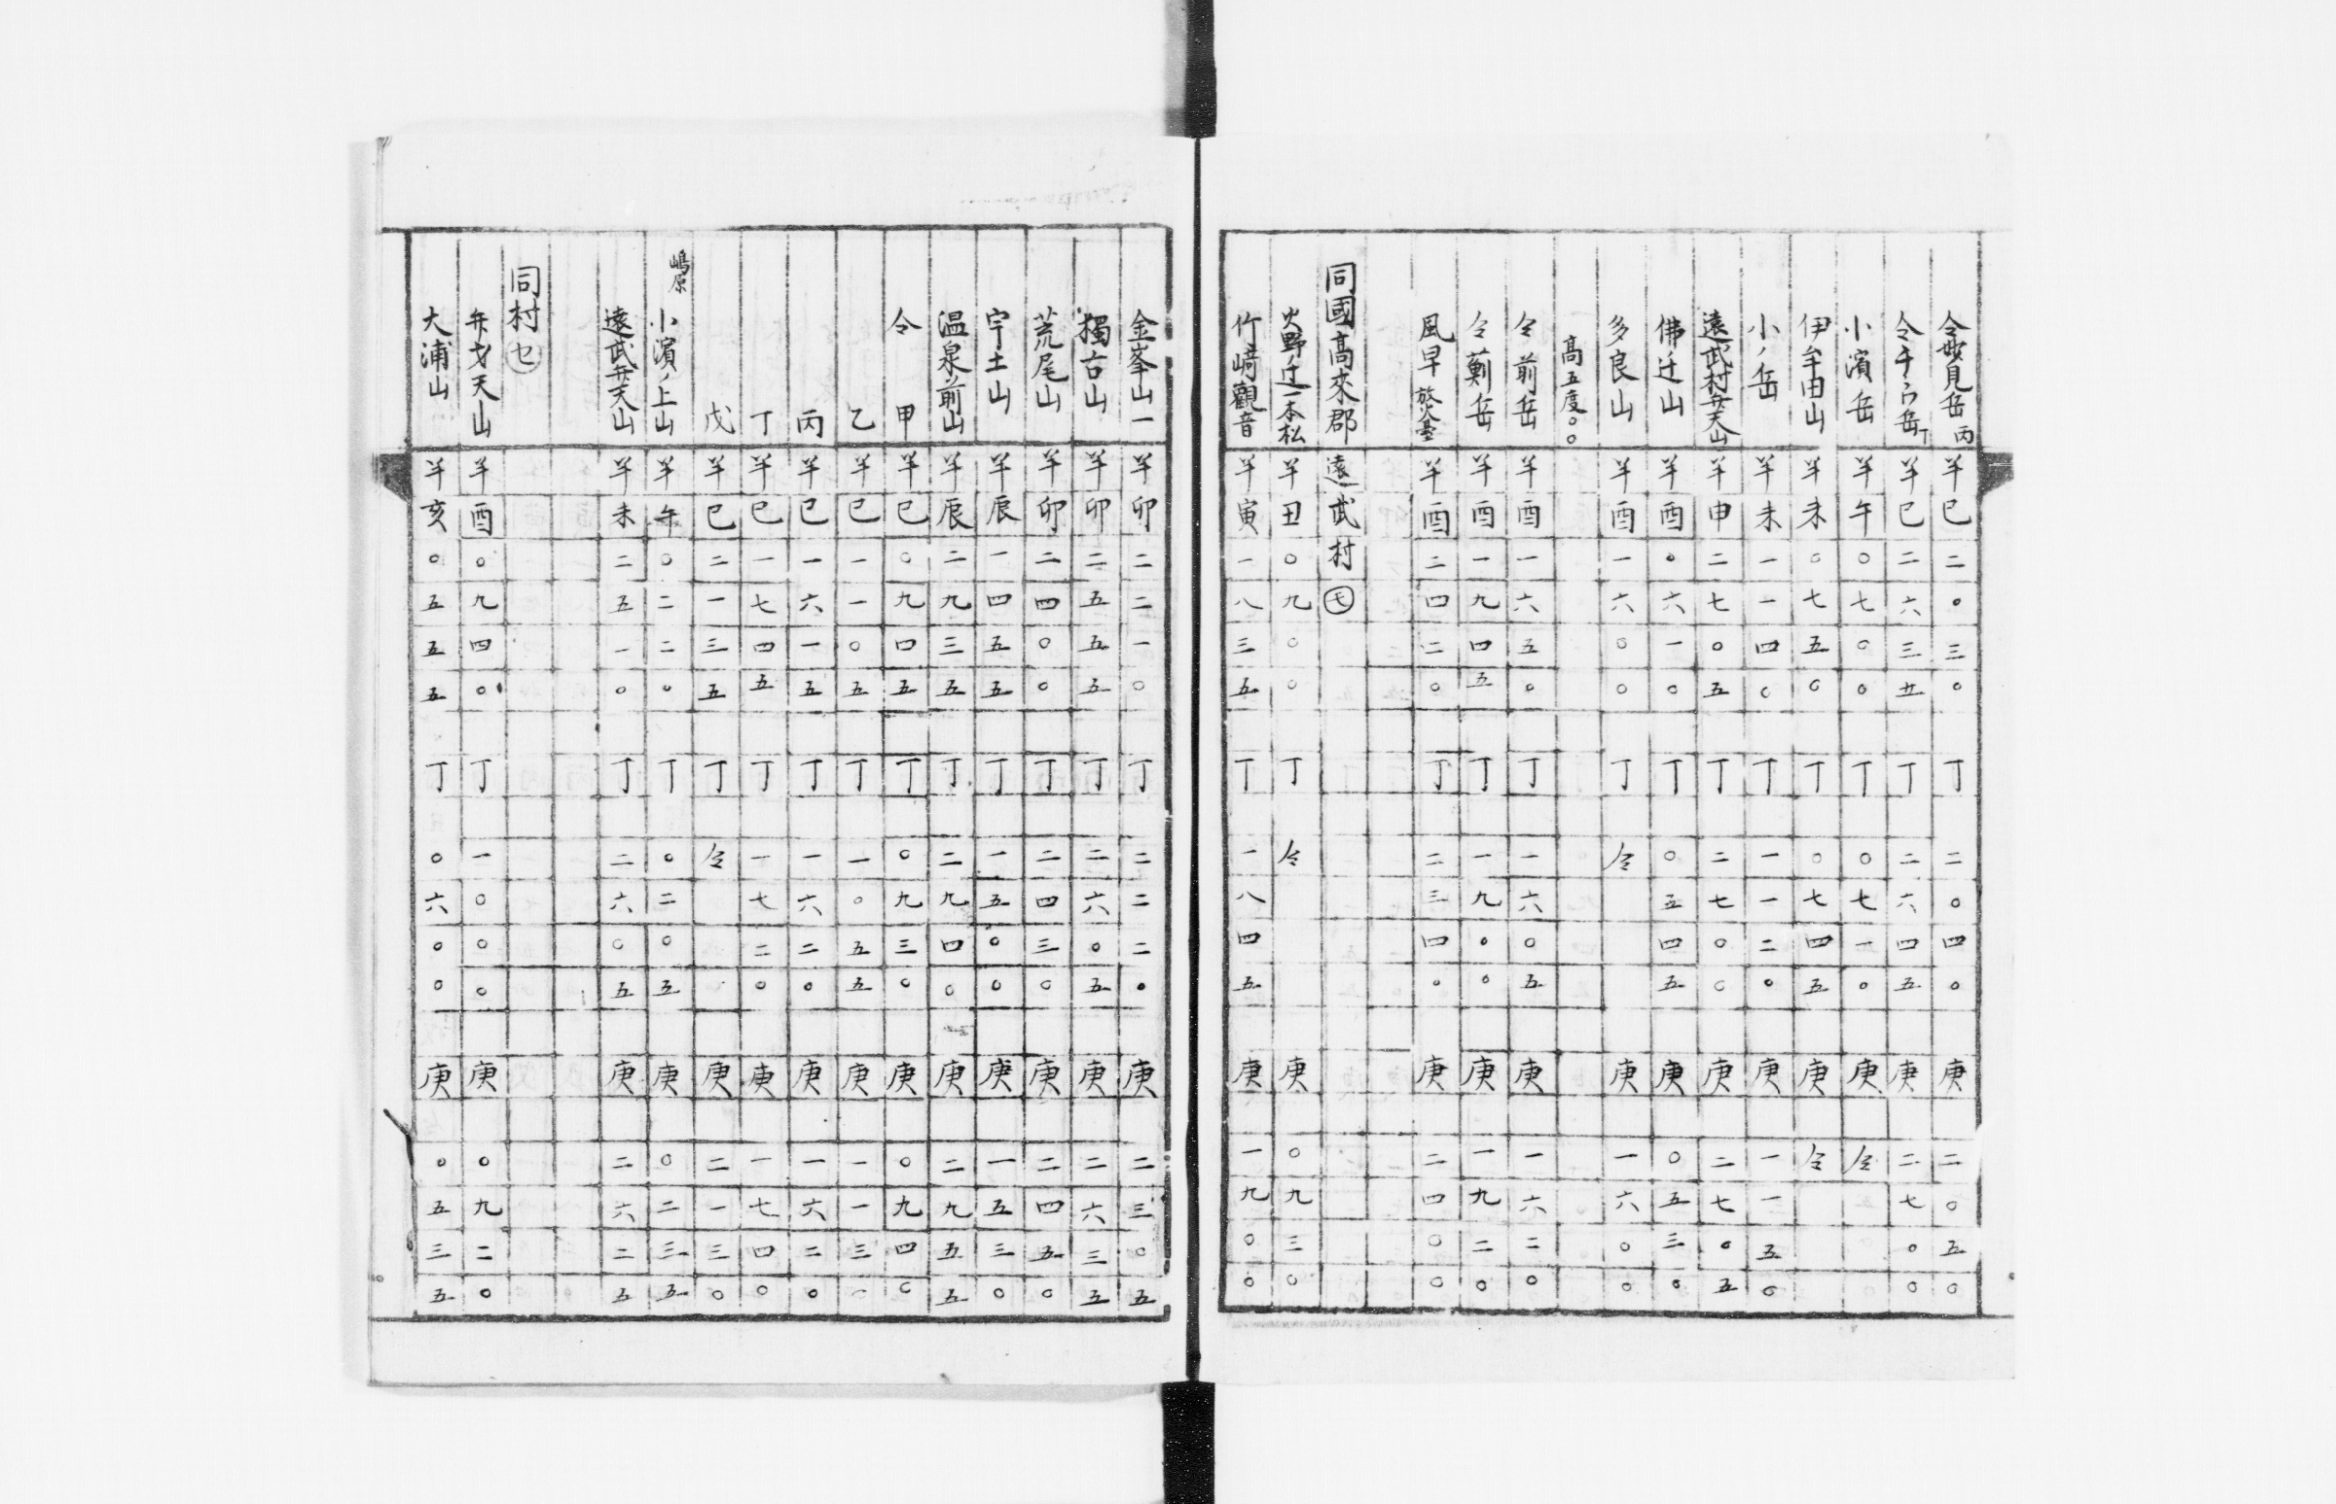 仝妙見岳 丙 半 巳 二〇三〇 丁 二〇四〇 庚 二〇五〇
仝千々岳 丁 半 巳 二六三五 丁 二六四五 庚 二七〇〇
小濱岳 半 午 〇七〇〇 丁 〇七一〇 庚 仝
伊牟田山 半 未 〇七五〇 丁 〇七四五 庚 仝
小ノ岳 半 未 一一四〇 丁 一一二〇 庚 一一五〇
遠武村弁天山 半 申 二七〇五 丁 二七〇〇 庚 二七〇五
佛辻山 半 酉 〇六一〇 丁 〇五四五 庚 〇五三〇
多良山 半 酉 一六〇〇 丁 仝 庚 一六〇〇
高五度〇〇
仝前岳 半 酉 一六五〇 丁 一六〇五 庚 一六二〇
仝 岳 半 酉 一九四五 丁 一九〇〇 庚 一九二〇
風早 放火臺 半 酉 二四二〇 丁 二三四〇 庚 二四〇〇
同國高來郡 遠武村 ㊆
火野辻一本松 半 丑 〇九〇〇 丁 仝 庚 〇九三〇
竹﨑觀音 半 寅 一八三五 丁 一八四五 庚 一九〇〇
金峯山 一 半 卯 二二一〇 丁 二二二〇 庚 二三〇五
獨古山 半 卯 二五五五 丁 二六〇五 庚 二六三五
荒尾山 半 卯 二四〇〇 丁 二四三〇 庚 二四五〇
宇土山 半 辰 一四五五 丁 一五〇〇 庚 一五三〇
温泉前山 半 辰 二九三五 丁 二九四〇 庚 二九五五
仝 甲 半 巳 〇九四五 丁 〇九三〇 庚 〇九四〇
乙 半 巳 一一〇五 丁 一〇五五 庚 一一三〇
丙 半 巳 一六一五 丁 一六二〇 庚 一六二〇
丁 半 巳 一七四五 丁 一七二〇 庚 一七四〇
戊 半 巳 二一三五 丁 仝 庚 二一三〇
嶋原 小濱ノ上山 半 午 〇二二〇 丁 〇二〇五 庚 〇二三五
遠武弁天山 半 未 二五一〇 丁 二六〇五 庚 二六二五
同村 ㊆
弁才天山 半 酉 〇九四〇 丁 一〇〇〇 庚 〇九二〇
大浦山 半 亥 〇五五五 丁 〇六〇〇 庚 〇五三五